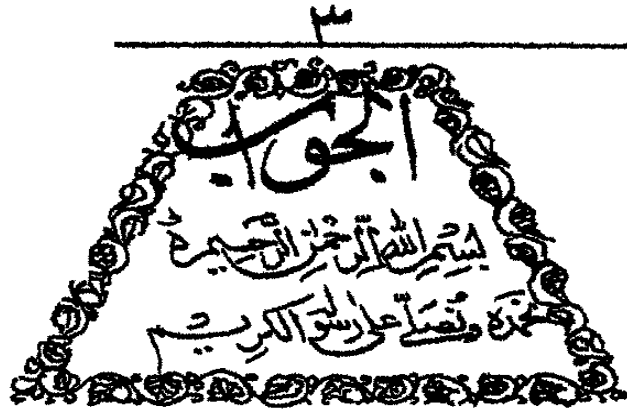 ۳
الجواب
بِسْمِ اللّٰهِ الرَّحْمٰنِ الرَّحِيْمِ
نحمدہ و نصلّی علیٰ رسولہ الکریم